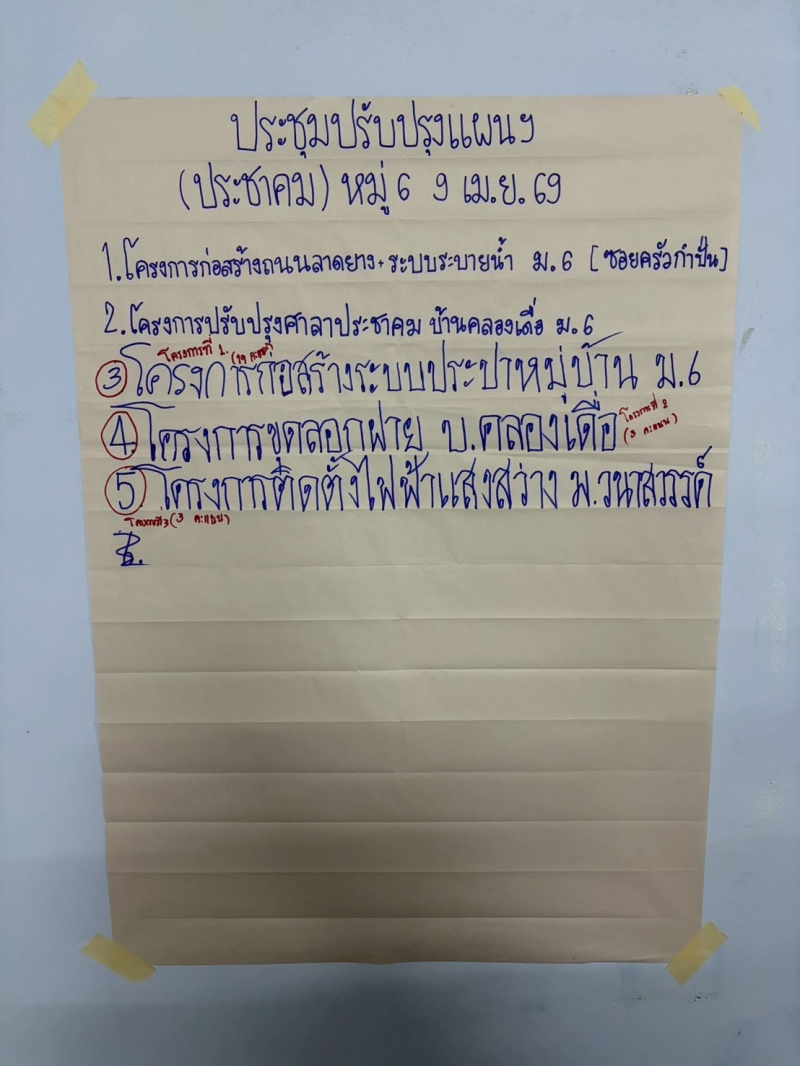 ประชุมปรับปรุงแผนฯ
(ประชาคม) หมู่ 6 9 เม.ย. 69
1. โครงการก่อสร้างถนนลาดยาง + ระบบระบายน้ำ ม.6 [ซอยครัวกำปั่น]
2. โครงการปรับปรุงศาลาประชาคม บ้านคลองเดื่อ ม.6
โครงการที่ 1. (19 คะแนน)
3 โครงการก่อสร้างระบบประปาหมู่บ้าน ม.6
4. โครงการขุดลอกฝาย บ.คลองเดื่อ
โครงการที่ 2
(3 คะแนน)
5 โครงการติดตั้งไฟฟ้าแสงสว่าง ม.วนาสวรรค์
โครงการที่ 3 (3 คะแนน)